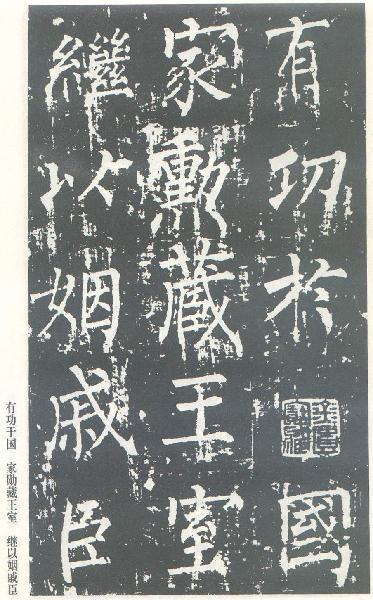 有功於國
家勳藏王室
繼以姻戚臣
有功于国 家勋藏王室 继以姻戚臣